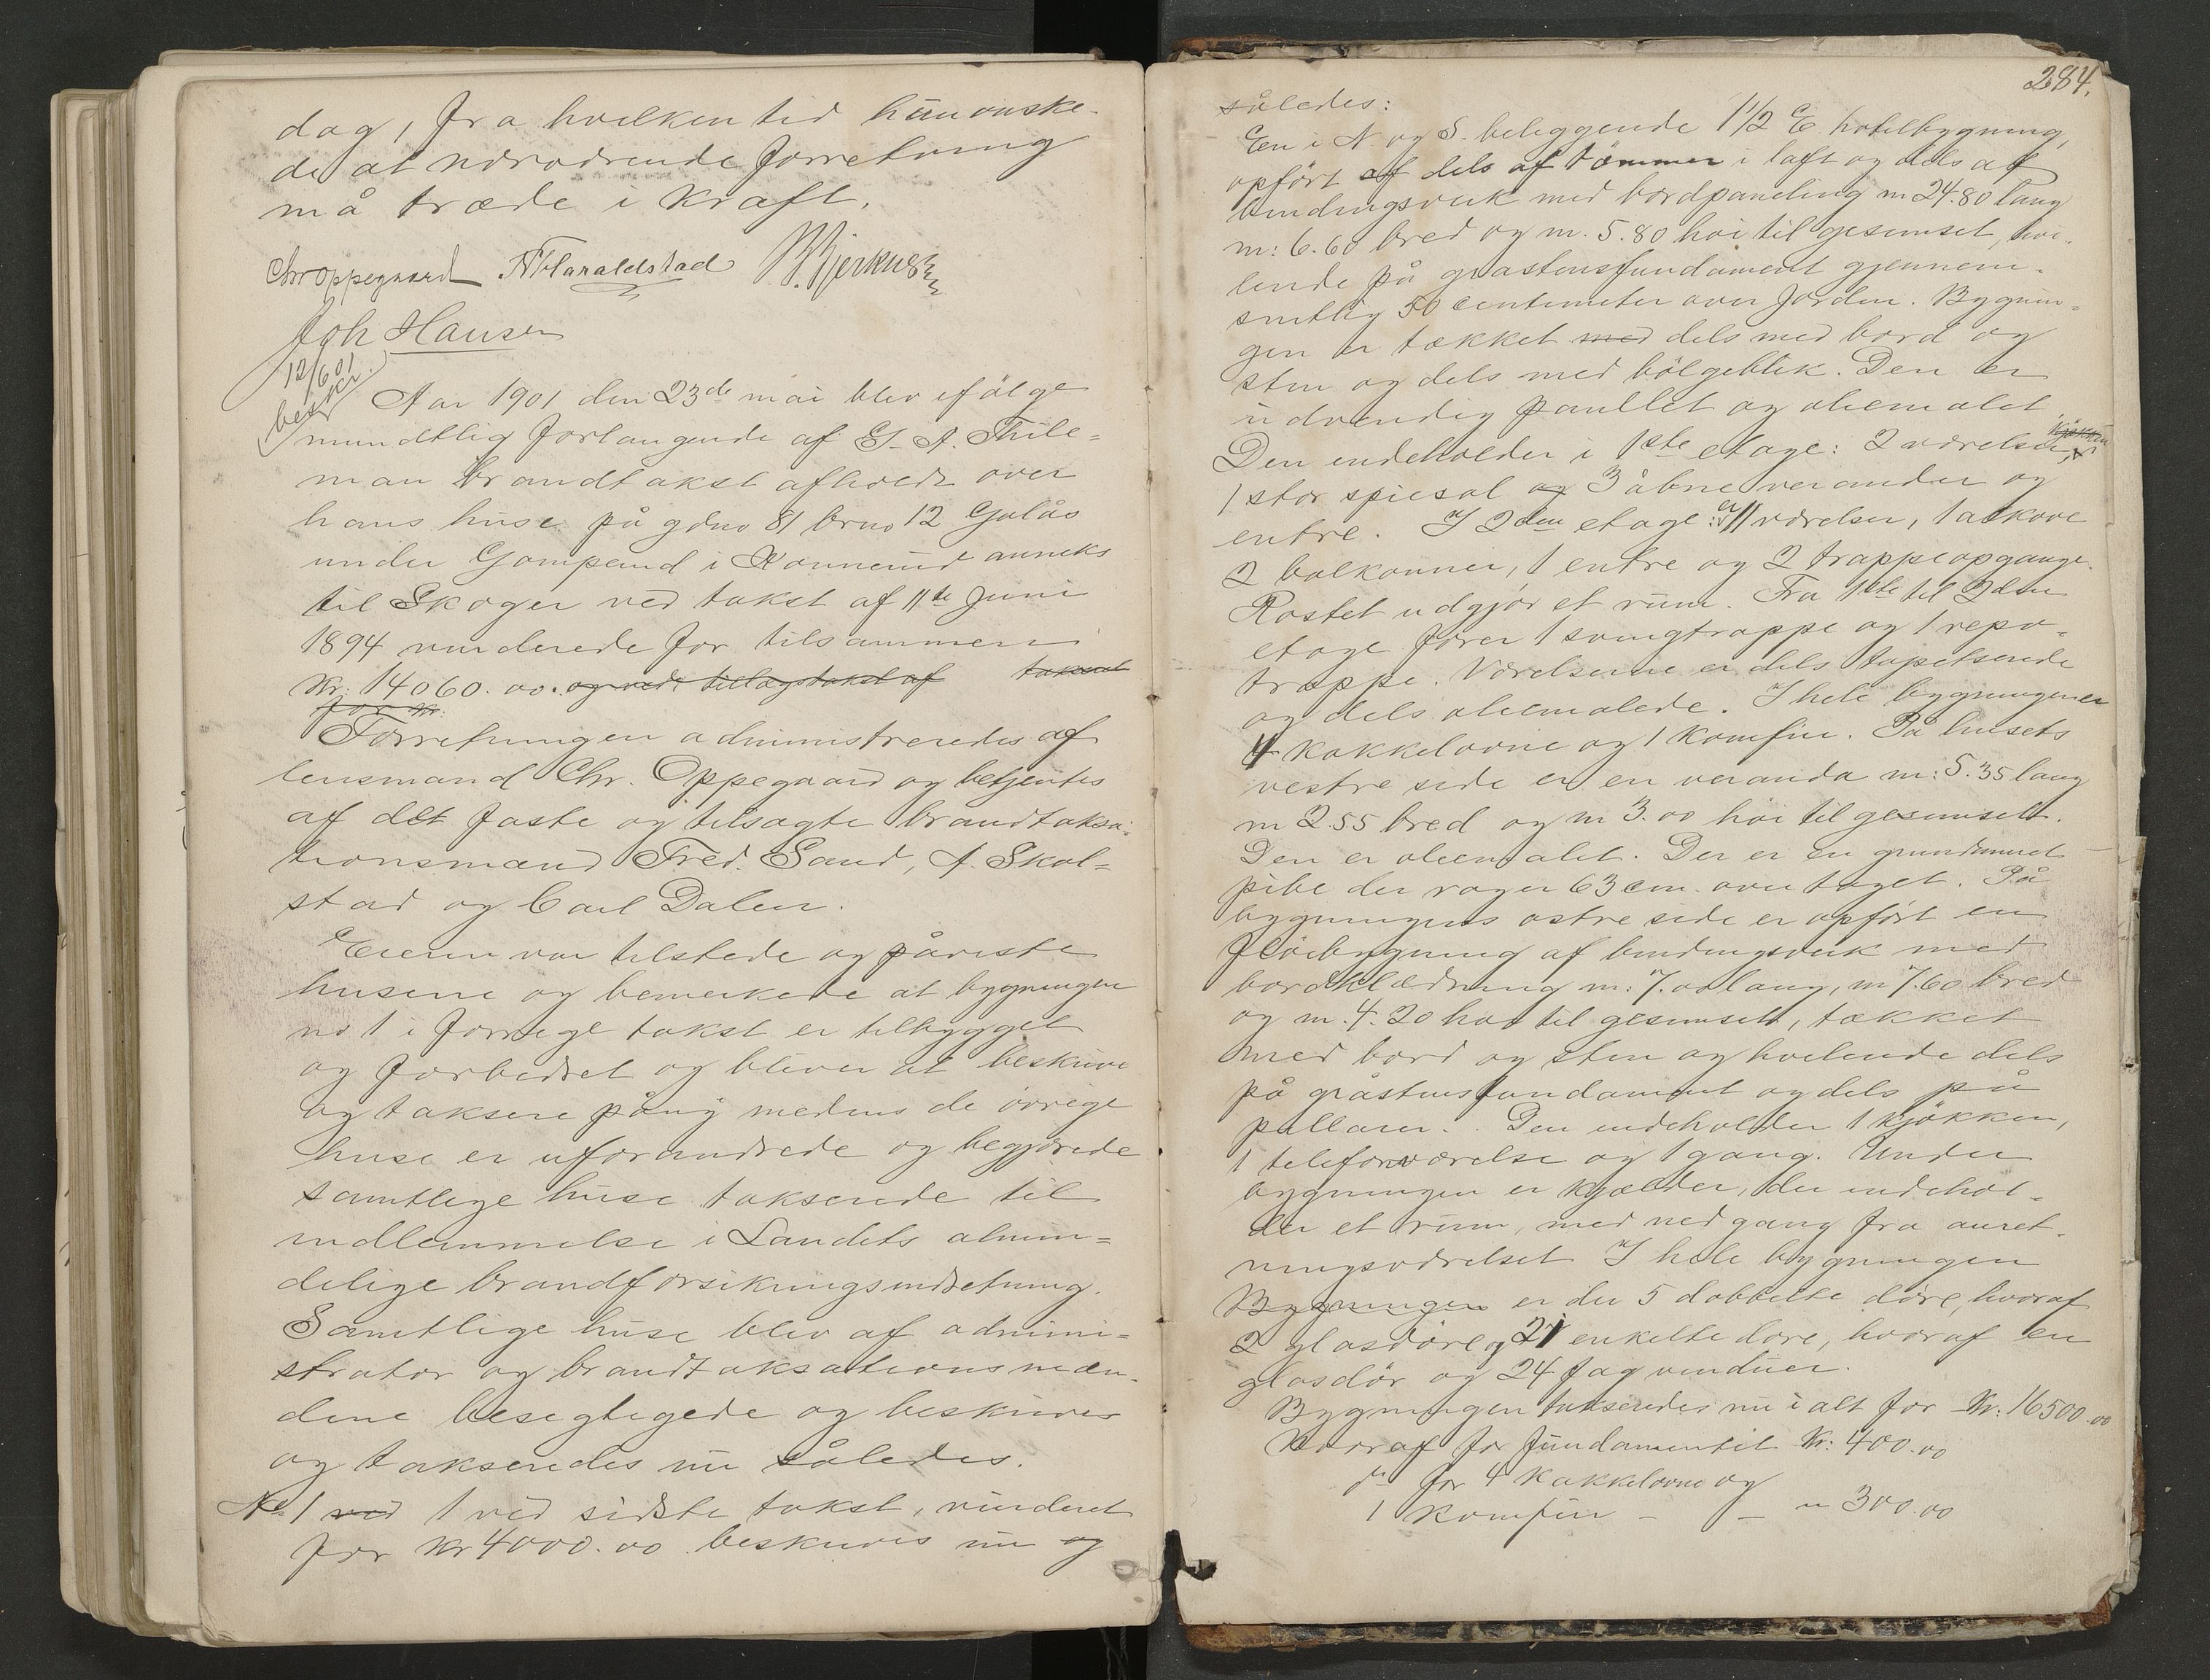 dag, fra hvilken tid han ønske-
de at nærværende forretning
må træde i kraft.
Chr Oppegaard N Haraldstad
Joh Hansen
12/6 01
beskr.
Aar 1901 den 23de mai blev ifølge
mundtlig forlangende af G. A. Thile=
man brandtakst afholdt over
hans huse på gdno 81 brno 12 Gulås
under Gompend i Konnerud anneks
til Skoger ved takst af 11te Juni
1894 vurderede for tilsammen
Kr: 14060.00. og ved tillægstakst af takseret
for Kr.
Forretningen administreredes af
lensmand Chr. Oppegaard og betjentes
af det faste og tilsagte brandtaksa-
tionsmænd Fred. Sand, A. Skal=
stad og Carl Dalen.
Eieren var tilstede og påviste
husene og bemerkede at bygningen
no 1 i forrige takst er tilbygget
og forbedret og bliver at beskrive
og taksere påny medens de øvrige
huse er uforandrede og begjærede
samtlige huse takserede til
indlemmelse i Landets almin=
delige brandforsikringsindretning.
Samtlige huse blev af admini=
strator og brandtaksationsmæn-
dene besegtigede og beskrives
og takseredes nu således.
No 1 ved 1 ved sidste takst, vurderet
for Kr 4000.00 beskrives nu og
284.
således:
En i N. og S. beliggende 1 1/2 E. hotelbygning,
opført af dels af tømmer i laft og dels af
bindingsverk med bordpaneling m 24.80 lang
m: 6.60 bred og m. 5.80 høi til gesimset, hvi-
lende på gråstensfundament gjennem-
snitlig 50 centimeter over jorden. Bygnin-
gen er tækket med dels med bord og
sten og dels med bølgeblik. Den er
udvendig panelet og oliemalet.
Den indeholder i 1ste etage: 2 værelser, kjøkken
1 stor spisesal og 3 åbne verander og
entre. I 2den etage er: 11 værelser, 1 alkove
2 balkonner, 1 entre og 2 trappeopgange.
Rostet udgjør et rum. Fra 1ste til 2den
etage fører 1 svingtrappe og 1 repo-
trappe. Værelserne er dels tapetserede
og dels oliemalede. I hele bygningen er
4 kakkelovne og 1 komfur. På husets
vestre side er en veranda m: 5.35 lang
m 2.55 bred og m 3.00 høi til gesimset.
Den er oliemalet. Der er en grundmuret
pibe der rager 63 cm. over taget. På
bygningens østre side er opført en
fløibygning af bindingsverk med
bordklædning m: 7.00 lang, m 7.60 bred
og m. 4.20 høi til gesimset, tækket
med bord og sten og hvilende dels
på gråstensfundament og dels på
pillarer. Den indeholder 1 kjøkken,
1 telefonværelse og 1 gang. Under
bygningen er kjælder, der indehol-
der et rum, med nedgang fra anret-
ningsværelset I hele bygningen
Bygningen er der 5 dobbelte døre, hvoraf
2 glasdøre og 21 enkelte døre, hvoraf en
glasdør og 24 fag vinduer.
Bygningen takseredes nu i alt for Kr: 16500.00
hvoraf for fundamentet Kr: 400.00
do for 4 kakkelovne og
1 komfur – – " 300.00